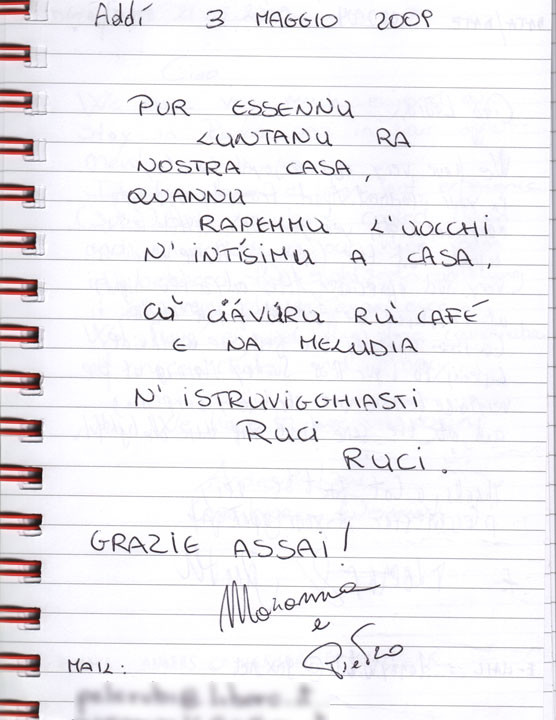 Addí 3 MAGGIO 2009
PUR ESSENNU
LUNTANU RA
NOSTRA CASA,
QUANNU
RAPEMMU L'UOCCHI
N'INTÍSIMU A CASA,
CÙ CIÁVÚRU RÙ CAFÉ
E NA MELUDIA
N'ISTRUVIGGHIASTI
RUCI
RUCI.
GRAZIE ASSAI!
Marianna
e
Pietro
MAIL: